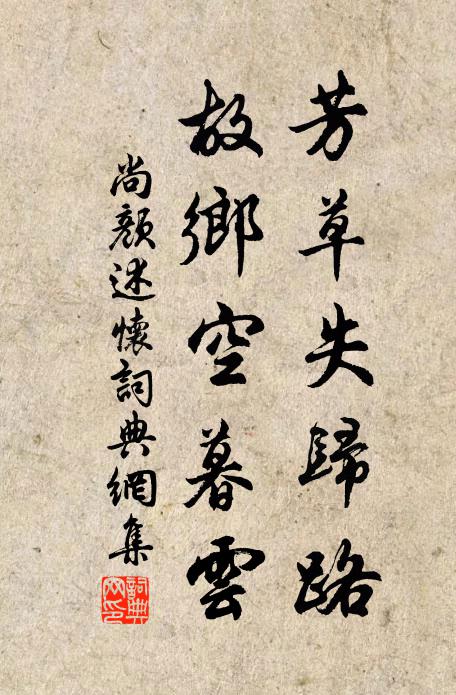 芳草失歸路
故鄉空暮雲
尚顏述懷詞典網集
詞典網印